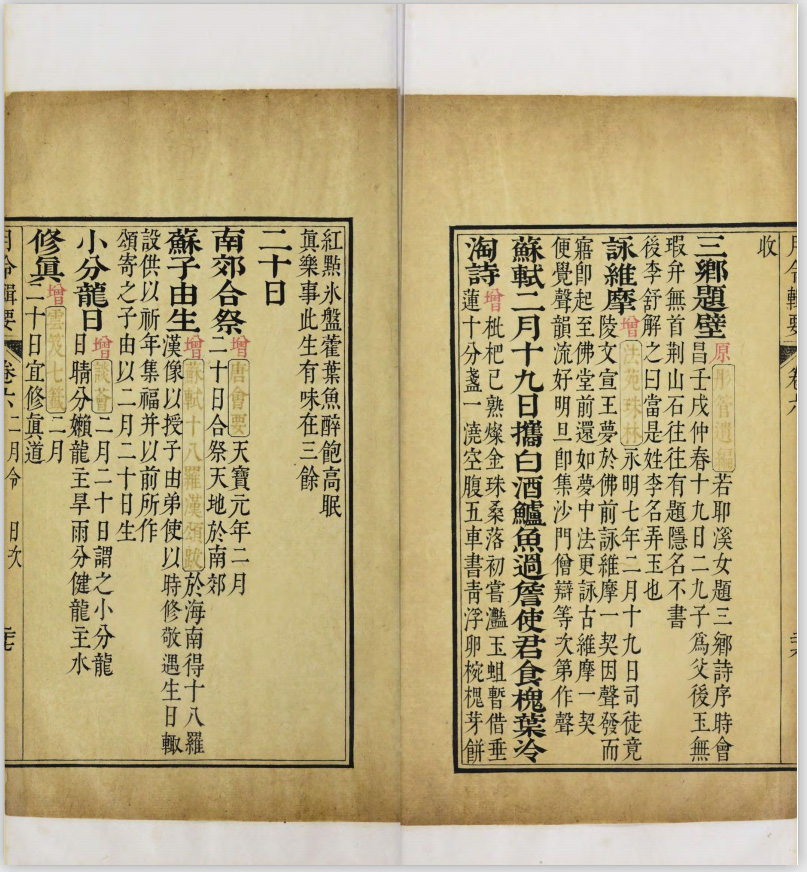 月令輯要 卷六
收
三鄉題壁 原 彤管遺編 若耶溪女題三鄉詩序時會
昌壬戌仲春十九日二九子為父後玉無
瑕弁無首荆山石往往有題隱名不書
後李舒解之曰當是姓李名弄玉也
詠維摩 增 法苑珠林 永明七年二月十九日司徒竟
陵文宣王夢於佛前詠維摩一契因聲發而
寤卽起至佛堂前還如夢中法更詠古維摩一契
便覺聲韻流好明旦卽集沙門僧辯等次第作聲
蘇軾二月十九日攜白酒鱸魚過詹使君食槐葉冷
淘詩 增 枇杷已熟燦金珠桑落初嘗灩玉蛆暫借垂
蓮十分盞一澆空腹五車書靑浮卵椀槐芽餅
紅點氷盤藿葉魚醉飽高眠
眞樂事此生有味在三餘
二十日
南郊合祭 增 唐會要 天寶元年二月
二十日合祭天地於南郊
蘇子由生 增 蘇軾十八羅漢頌跋 於海南得十八羅
漢像以授子由弟使以時修敬遇生日輙
設供以祈年集福并以前所作
頌寄之子由以二月二十日生
小分龍日 增 談薈 二月二十日謂之小分龍
日晴分嬾龍主旱雨分健龍主水
修眞 增 雲笈七籤 二月
二十日宜修眞道
月令輯要 卷六 二月令 日次